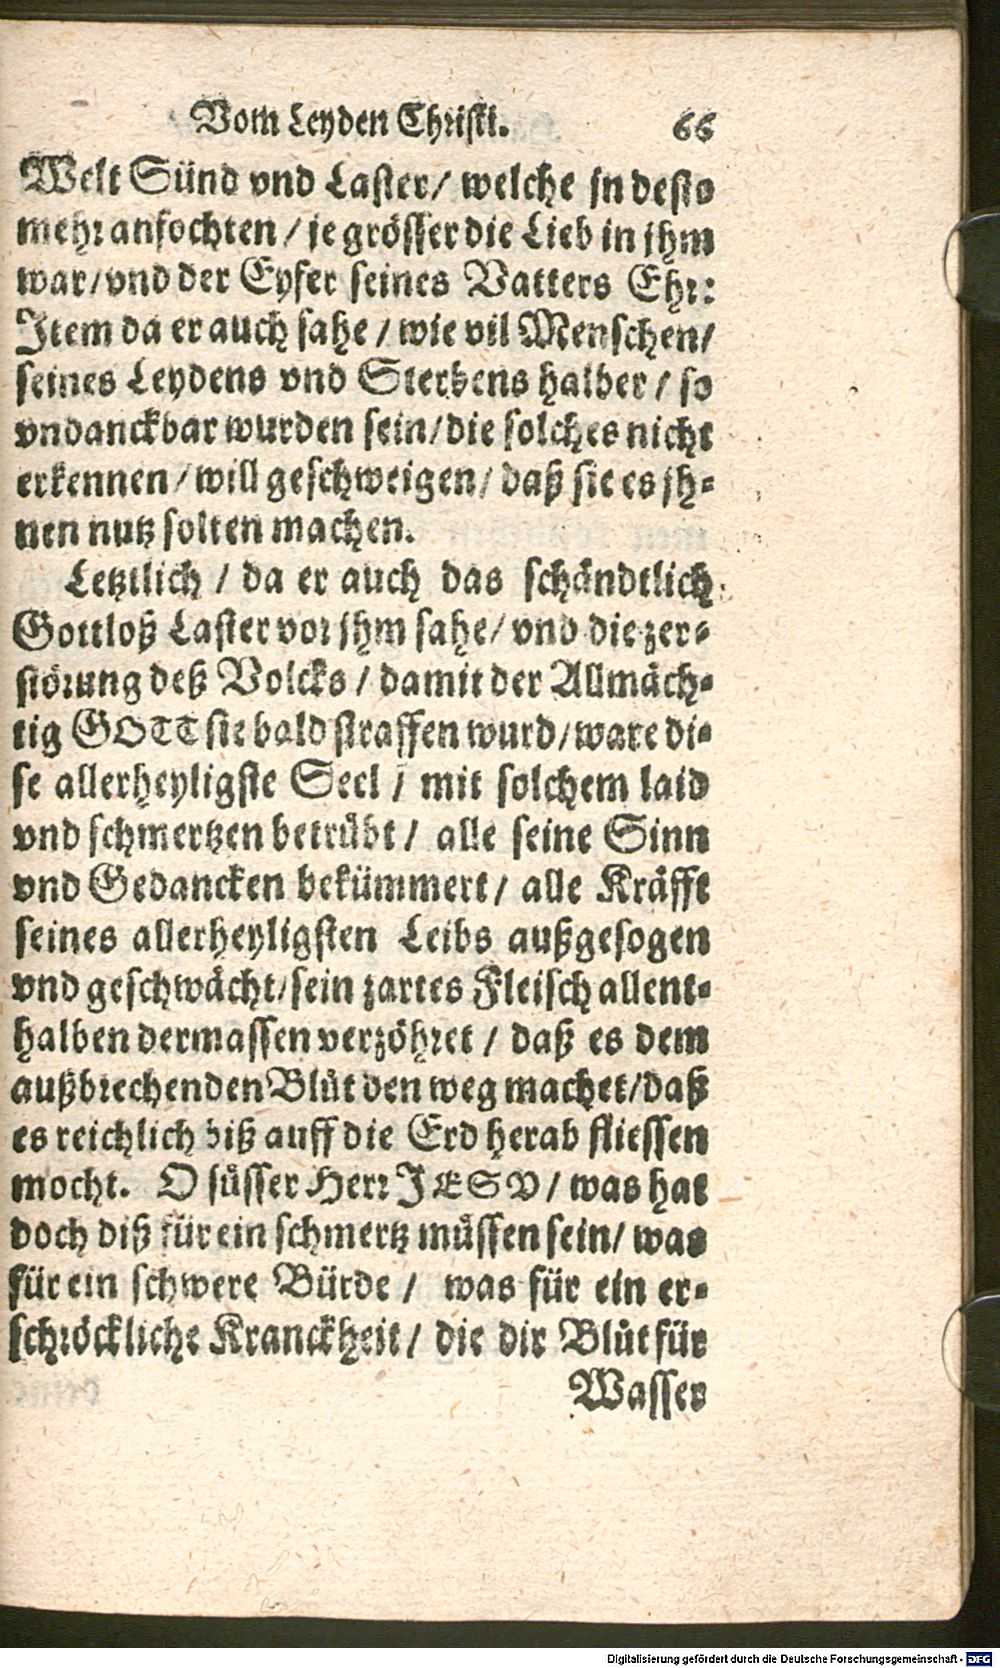 Vom Leyden Christi. 66
Welt Sünd vnd Laster/ welche jn desto
mehr anfochten / je grösser die Lieb in jhm
war/vnd der Eyfer seines Vatters Ehr:
Item da er auch sahe / wie vil Menschen/
seines Leydens vnd Sterbens halber / so
vndanckbar wurden sein/die solches nicht
erkennen/will geschweigen/ daß sie es jh-
nen nutz solten machen.
Letztlich / da er auch das schändtlich
Gottloß Laster vor jhm sahe/ vnd die zer-
störung deß Volcks / damit der Allmäch-
tig GOTT sie bald straffen wurd/ware di-
se allerheyligste Seel / mit solchem laid
vnd schmertzen betrübt / alle seine Sinn
vnd Gedancken bekümmert/ alle Kräfft
seines allerheyligsten Leibs außgesogen
vnd geschwächt/sein zartes Fleisch allent-
halben dermassen verzöhret / daß es dem
außbrechenden Blůt den weg machet/daß
es reichlich biß auff die Erd herab fliessen
mocht. O süsser Herr JESV/ was hat
doch diß für ein schmertz müssen sein/ was
für ein schwere Bürde / was für ein er-
schröckliche Kranckheit/ die dir Blůt für
Wasser
Digitalisierung gefördert durch die Deutsche Forschungsgemeinschaft - DFG